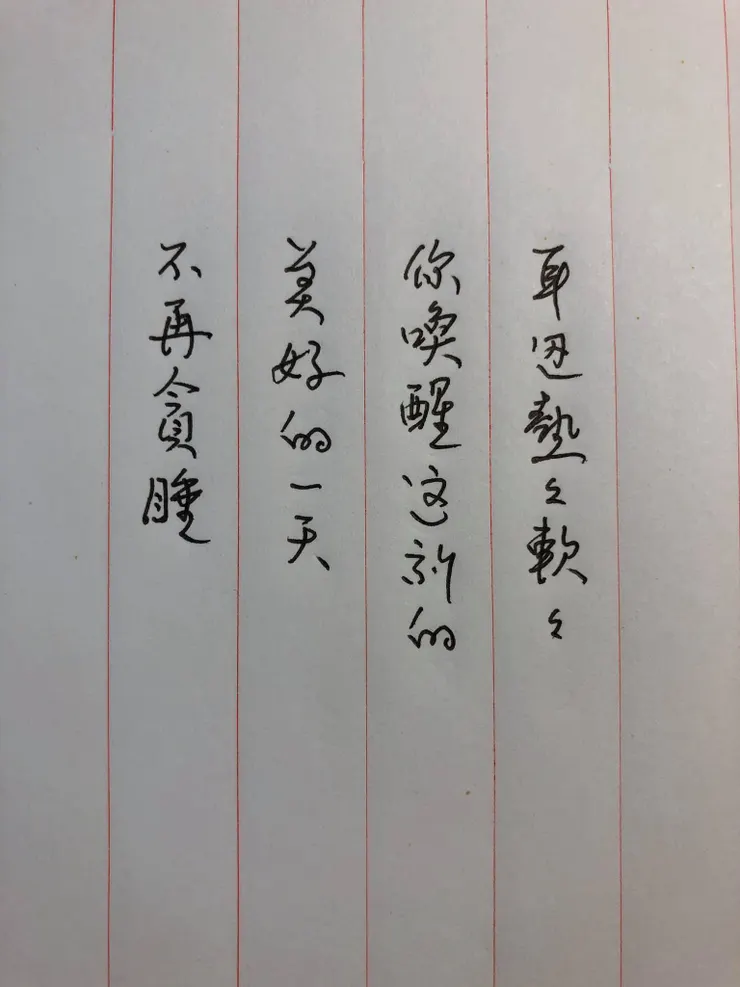 耳边熱々軟々
你喚醒这新的
美好的一天
不再貪睡